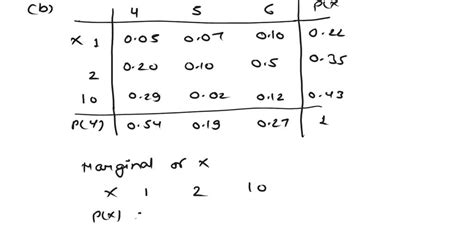 (b) 4 5 6 P(X
X 1 0.05 0.07 0.10 0.22
2 0.20 0.10 0.5 0.35
10 0.29 0.02 0.12 0.43
P(Y) 0.54 0.19 0.27 1
Marginal of X
X 1 2 10
P(X)